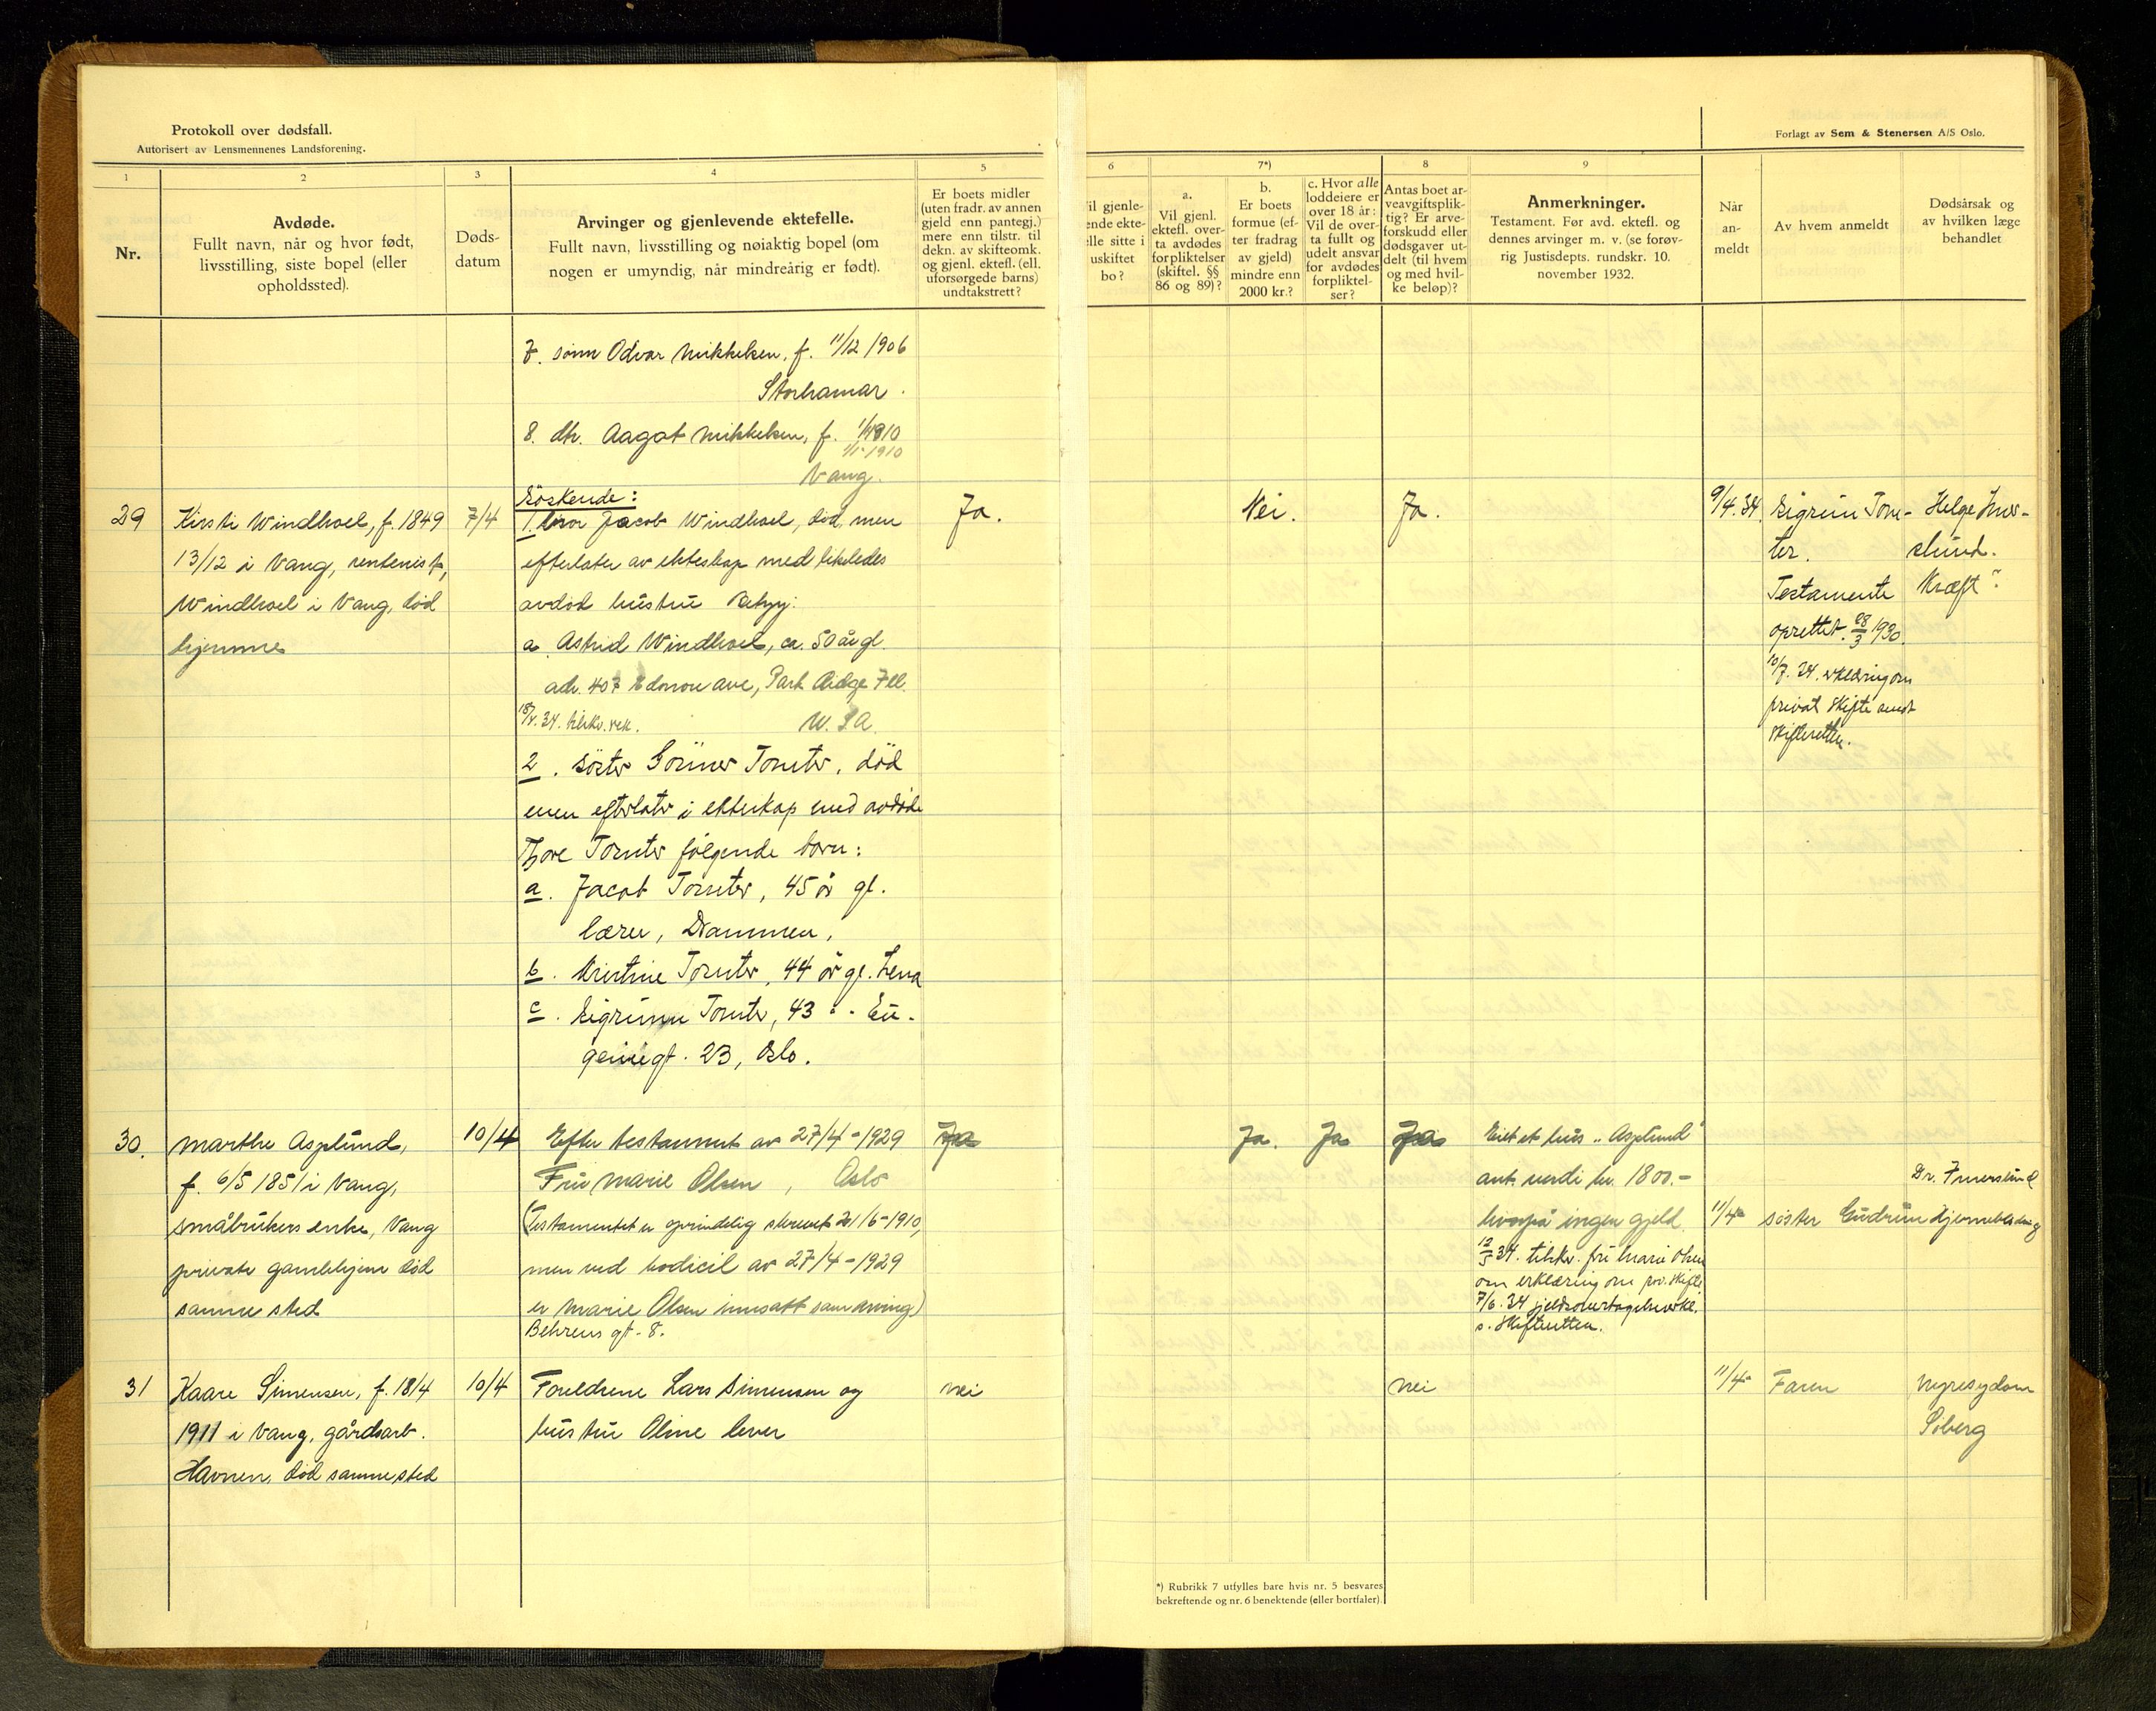 Protokoll over dødsfall.
Autorisert av Lensmennenes Landsforening.
1
2
3
4
5
Nr.
Avdøde.
Fullt navn, når og hvor født,
livsstilling, siste bopel (eller
opholdssted).
Døds-
datum
Arvinger og gjenlevende ektefelle.
Fullt navn, livsstilling og nøiaktig bopel (om
nogen er umyndig, når mindreårig er født).
Er boets midler
(uten fradr. av annen
gjeld enn pantegj.)
mere enn tilstr. til
dekn. av skifteomk.
og gjenl. ektefl. (ell.
uforsørgede barns)
undtakstrett?
7. sønn Odvar Mikkelsen, f. 11/12 1906
Storhamar.
8. dtr. Aagot Mikkelsen, f. 1/1 1910
1/1-1910
Vang.
29
Kirsti Windhoel, f. 1849
13/12 i Vang, rentenist,
Windhoel i Vang, død
hjemme
7/4
Søskende:
1. bror Jacob Windhoel, død, men
efterlater av ekteskap med likeledes
avdød hustru
a. Astrid Windhoel, ca. 50 år gl.
adr. 407 Edonou ave, Park Ridge Ill.
15/5.34. tilskr. rek.
U.S.A.
2. søster Gunner Tomter, død
men efterlater i ekteskap med avdøde
Thore Tomter følgende barn:
a. Jacob Tomter, 45 år gl.
lærer, Drammen,
b. Kristine Tomter, 44 år gl. Lena
c. Sigrunn Tomter, 43 " - Eu-
geniegt. 23, Oslo.
Ja.
30.
Marthe Asplund,
f. 6/5 1851 i Vang,
småbrukers enke, Vang
private gamlehjem død
samme sted
10/4
Efter testament av 27/4-1929
Fru Marie Olsen, Oslo
(Testamentet er oprindelig skrevet 21/6-1910,
men ved kodicil av 27/4-1929
er Marie Olsen innsatt som arving)
Behrens gt. 8.
Ja
31
Kaare Simensen, f. 18/4
1911 i Vang, gårdsarb.
Havnen, død samme sted
10/4
Foreldrene Lars Simensen og
hustru Oline lever
nei
Forlagt av Sem & Stenersen A/S Oslo.
6
7*)
8
9
il gjenle-
ende ekte-
lle sitte i
uskiftet
bo?
a.
Vil gjenl.
ektefl. over-
ta avdødes
forpliktelser
(skiftel. §§
86 og 89)?
b.
Er boets
formue (ef-
ter fradrag
av gjeld)
mindre enn
2000 kr.?
c. Hvor alle
loddeiere er
over 18 år:
Vil de over-
ta fullt og
udelt ansvar
for avdødes
forpliktel-
ser?
Antas boet ar-
veavgiftsplik-
tig? Er arve-
forskudd eller
dødsgaver ut-
delt (til hvem
og med hvil-
ke beløp)?
Anmerkninger.
Testament. Før avd. ektefl. og
dennes arvinger m. v. (se forøv-
rig Justisdepts. rundskr. 10.
november 1932.
Når
an-
meldt
Av hvem anmeldt
Dødsårsak og
av hvilken læge
behandlet
Nei.
Ja.
9/4.34.
Sigrun Tom-
ter.
Testamente
oprettet. 28/3 1930.
10/7.34. erklæring om
privat skifte sendt
skifteretten.
Helge Imer-
slund.
"Kræft".
Ja.
Ja
Ja
Eiet et hus "Asplund"
ant. verdi kr. 1800.-
hvorpå ingen gjeld
12/5 34. tilskr. fru Marie Olsen
om erklæring om priv. skifte
7/6.34 gjeldsovertagelseserkl.
s. skifteretten.
11/4-
søster Gudrun
Dr. Imerslund
Hjerneblødning
nei
11/4-
Faren
Nyresydom
Soberg
*) Rubrikk 7 utfylles bare hvis nr. 5 besvares
bekreftende og nr. 6 benektende (eller bortfaler).